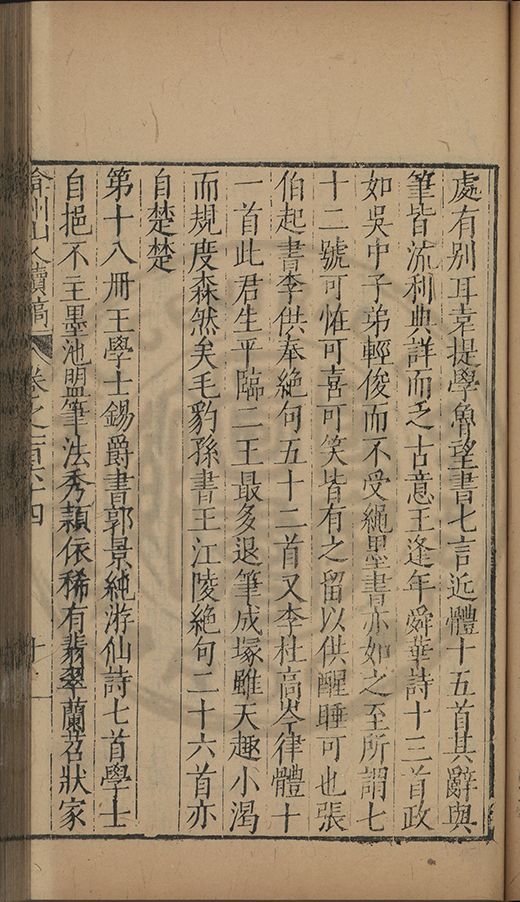 處有別耳袁提學魯望書七言近體十五首其辭與
筆皆流利典詳而乏古意王逢年舜華詩十三首政
如吳中子弟輕俊而不受繩墨書亦如之至所謂七
十二號可恠可喜可笑皆有之留以供醒睡可也張
伯起書李供奉絕句五十二首又李杜高岑律體十
一首此君生平臨二王最多退筆成塚雖天趣小渴
而規度森然矣毛豹孫書王江陵絕句二十六首亦
自楚楚
第十八冊王學士錫爵書郭景純游仙詩七首學士
自挹不主墨池盟筆法秀穎依稀有翡翠蘭苕狀家
弇州山人續稿 卷之一百六十四 十